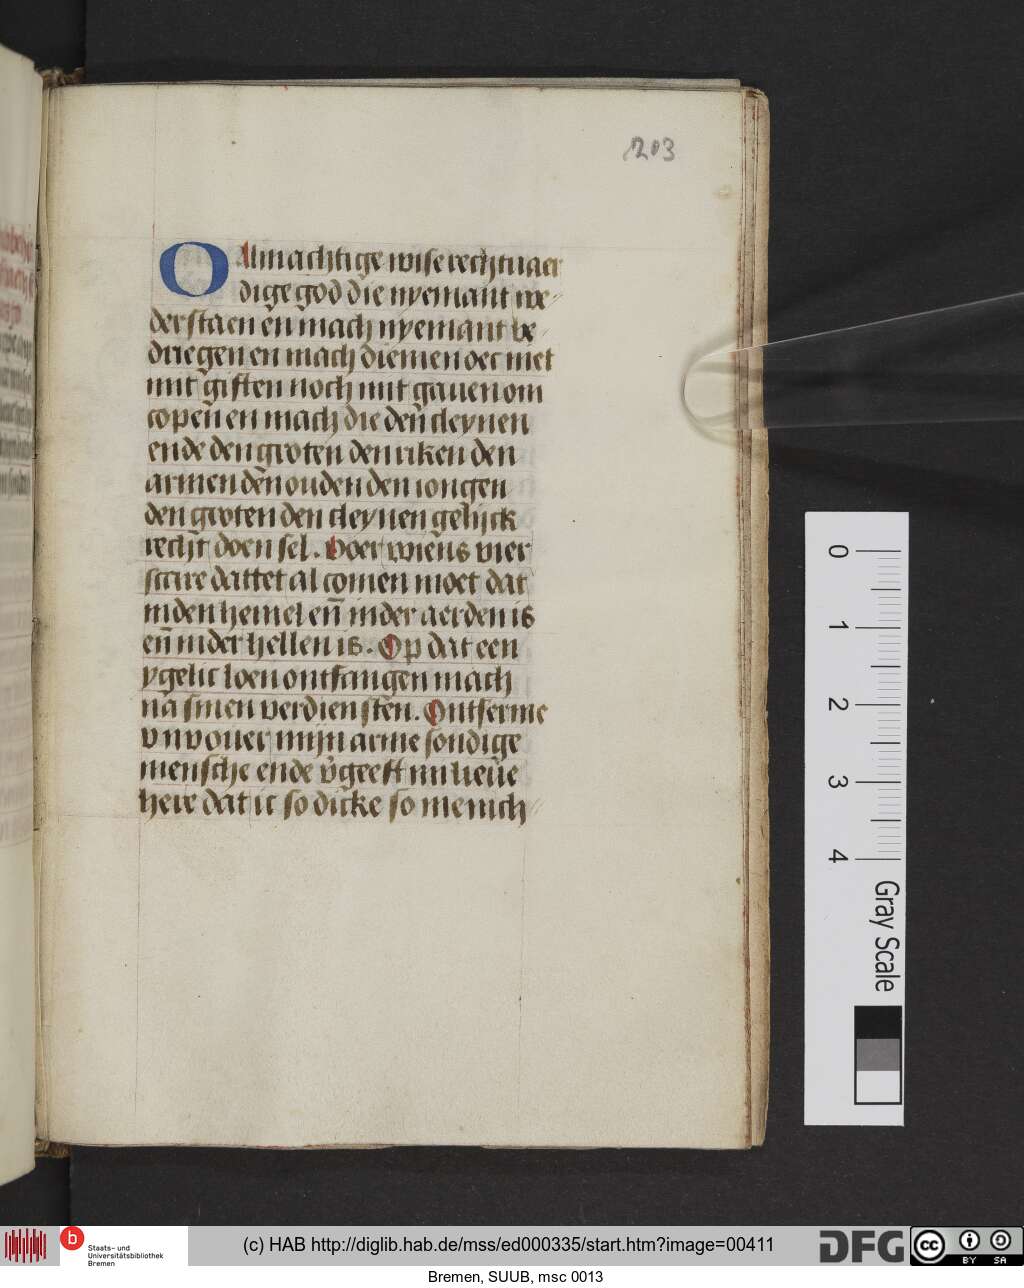 203
O Almachtige wise rechtuaer
dige god die nyemant we〃
derstaen en mach nyemant be〃
driegen en mach diemen oec niet
mit giften noch mit gauen om
copen en mach die den cleynen
ende den groten den riken den
armen den ouden den iongen
den groten den cleynen gelijck
recht doen sel. Voer wiens vier
scare dattet al comen moet dat
inden hemel en̄ inder aerden is
en̄ inder hellen is. Op dat een
ygelic loen ontfangen mach
na sinen verdiensten. Ontferme
v nv ouer mijn arme sondige
mensche ende v̉geeft mi lieue
here dat ic so dicke so menich〃
0
1
2
3
4
Gray Scale
b
Staats- und
Universitätsbibliothek
Bremen
(c) HAB http://diglib.hab.de/mss/ed000335/start.htm?image=00411
DFG
cc
BY SA
Bremen, SUUB, msc 0013